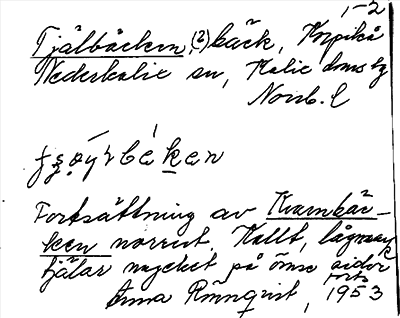 1-2
Tjälbäcken, (2) bäck, Korpikå
Nederkalix sn, Kalix doms bg
Norrb. l
Fortsättning av Kvarnbäc-
ken norrut. Kallt, lågmark
tjälar mycket på ömse sidor
forts
Anna Rönnqvist, 1953